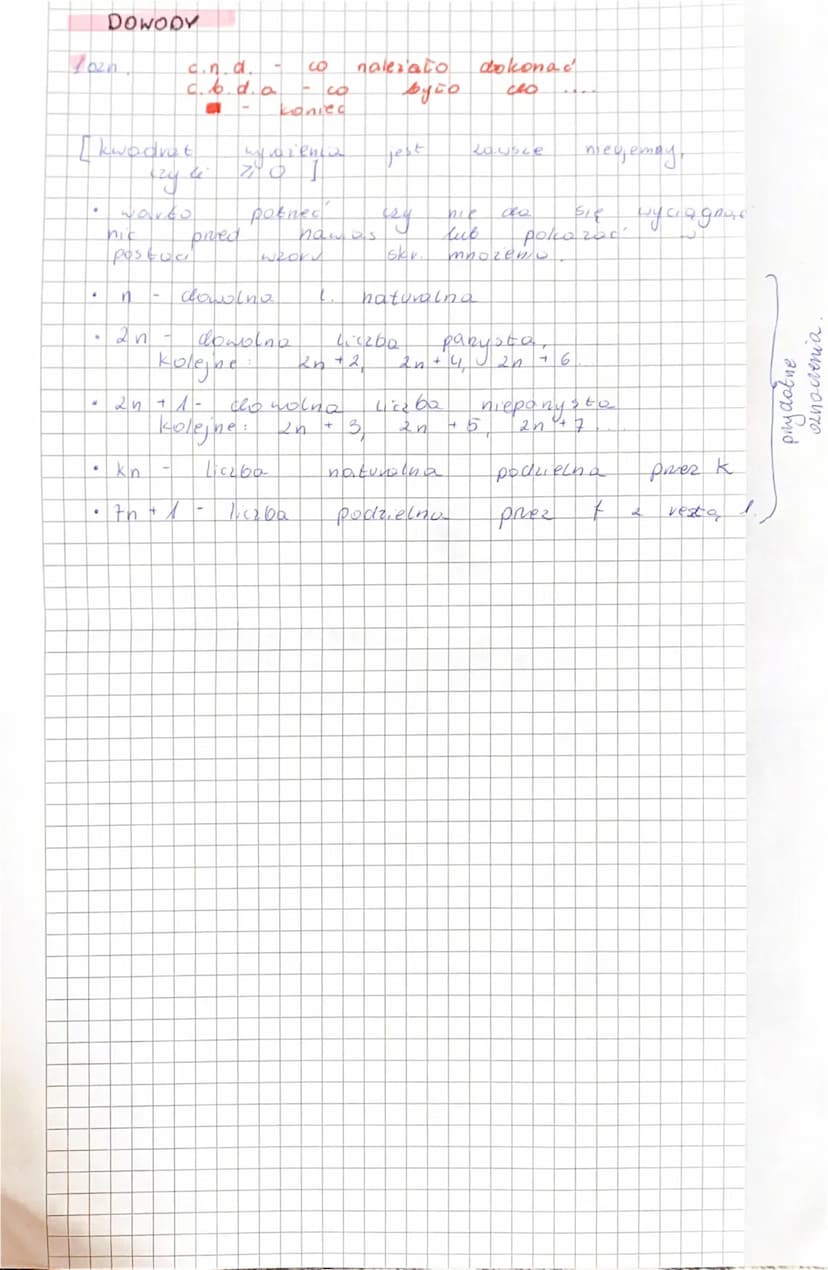 DOWODY
1 ozn. c.n.d. - co należało dokonać
c.b.d.a - co było do ....
■ - koniec
[kwadrat wyrażenia jest zawsze nieujemny,
czyli ≥ 0 ]
• warto patrzeć czy nie da się wyciągnąć
nic przed nawias lub pokazać w
postaci wzoru skr. mnożenia.
• n - dowolna l. naturalna
• 2n - dowolna liczba parzysta,
kolejne: 2n+2, 2n+4, 2n+6.
• 2n + 1 - dowolna liczba nieparzysta
kolejne: 2n + 3, 2n + 5, 2n + 7...
• kn - liczba naturalna podzielna przez k
• 7n + 1 - liczba podzielna przez 7 z resztą 1.
przydatne
oznaczenia.